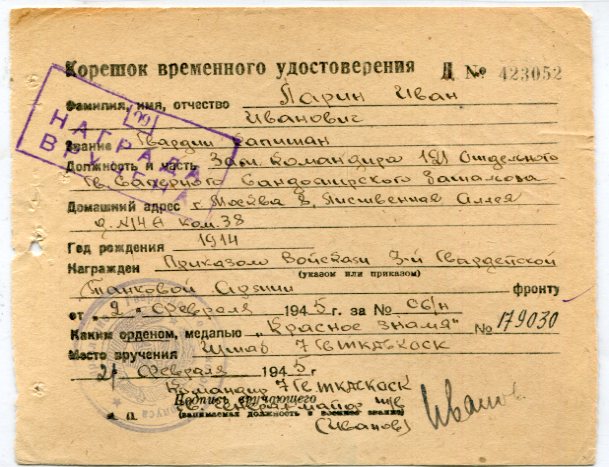 Корешок временного удостоверения Д № 423052
Фамилия, имя, отчество Ларин Иван
Иванович
НАГРАДА
ВРУЧЕНА
Звание Гвардии капитан
Должность и часть Зам. Командира 121 Отдельного
Гв. Саперного Сандомирского батальона
Домашний адрес г. Москва 8, Лиственная Аллея
д. №14А ком. 38
Год рождения 1914
Награжден Приказом Войскам 3-й Гвардейской
(указом или приказом)
Танковой Армии фронту
от „2“ февраля 1945 г. за № 06/н
Каким орденом, медалью „Красное знамя“ № 179030
Место вручения Штаб 7 ГвТКДКСК
февраля 1945
Командир 7 ГвТКДКСК
Подпись вручающего
Гв. Генерал-майор т/в
(занимаемая должность и военное звание)
М. П.
(Иванов)
Иванов